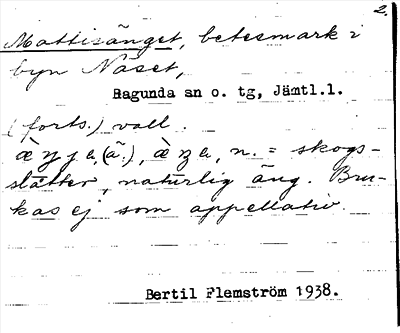 2.
Mattisänget, betesmark i
byn Näset,
Ragunda sn o. tg, Jämtl.l.
(forts.) vall.
n. = skogs-
slåtter, naturlig äng. Bru-
kas ej som appellativ.
Bertil Flemström 1938.